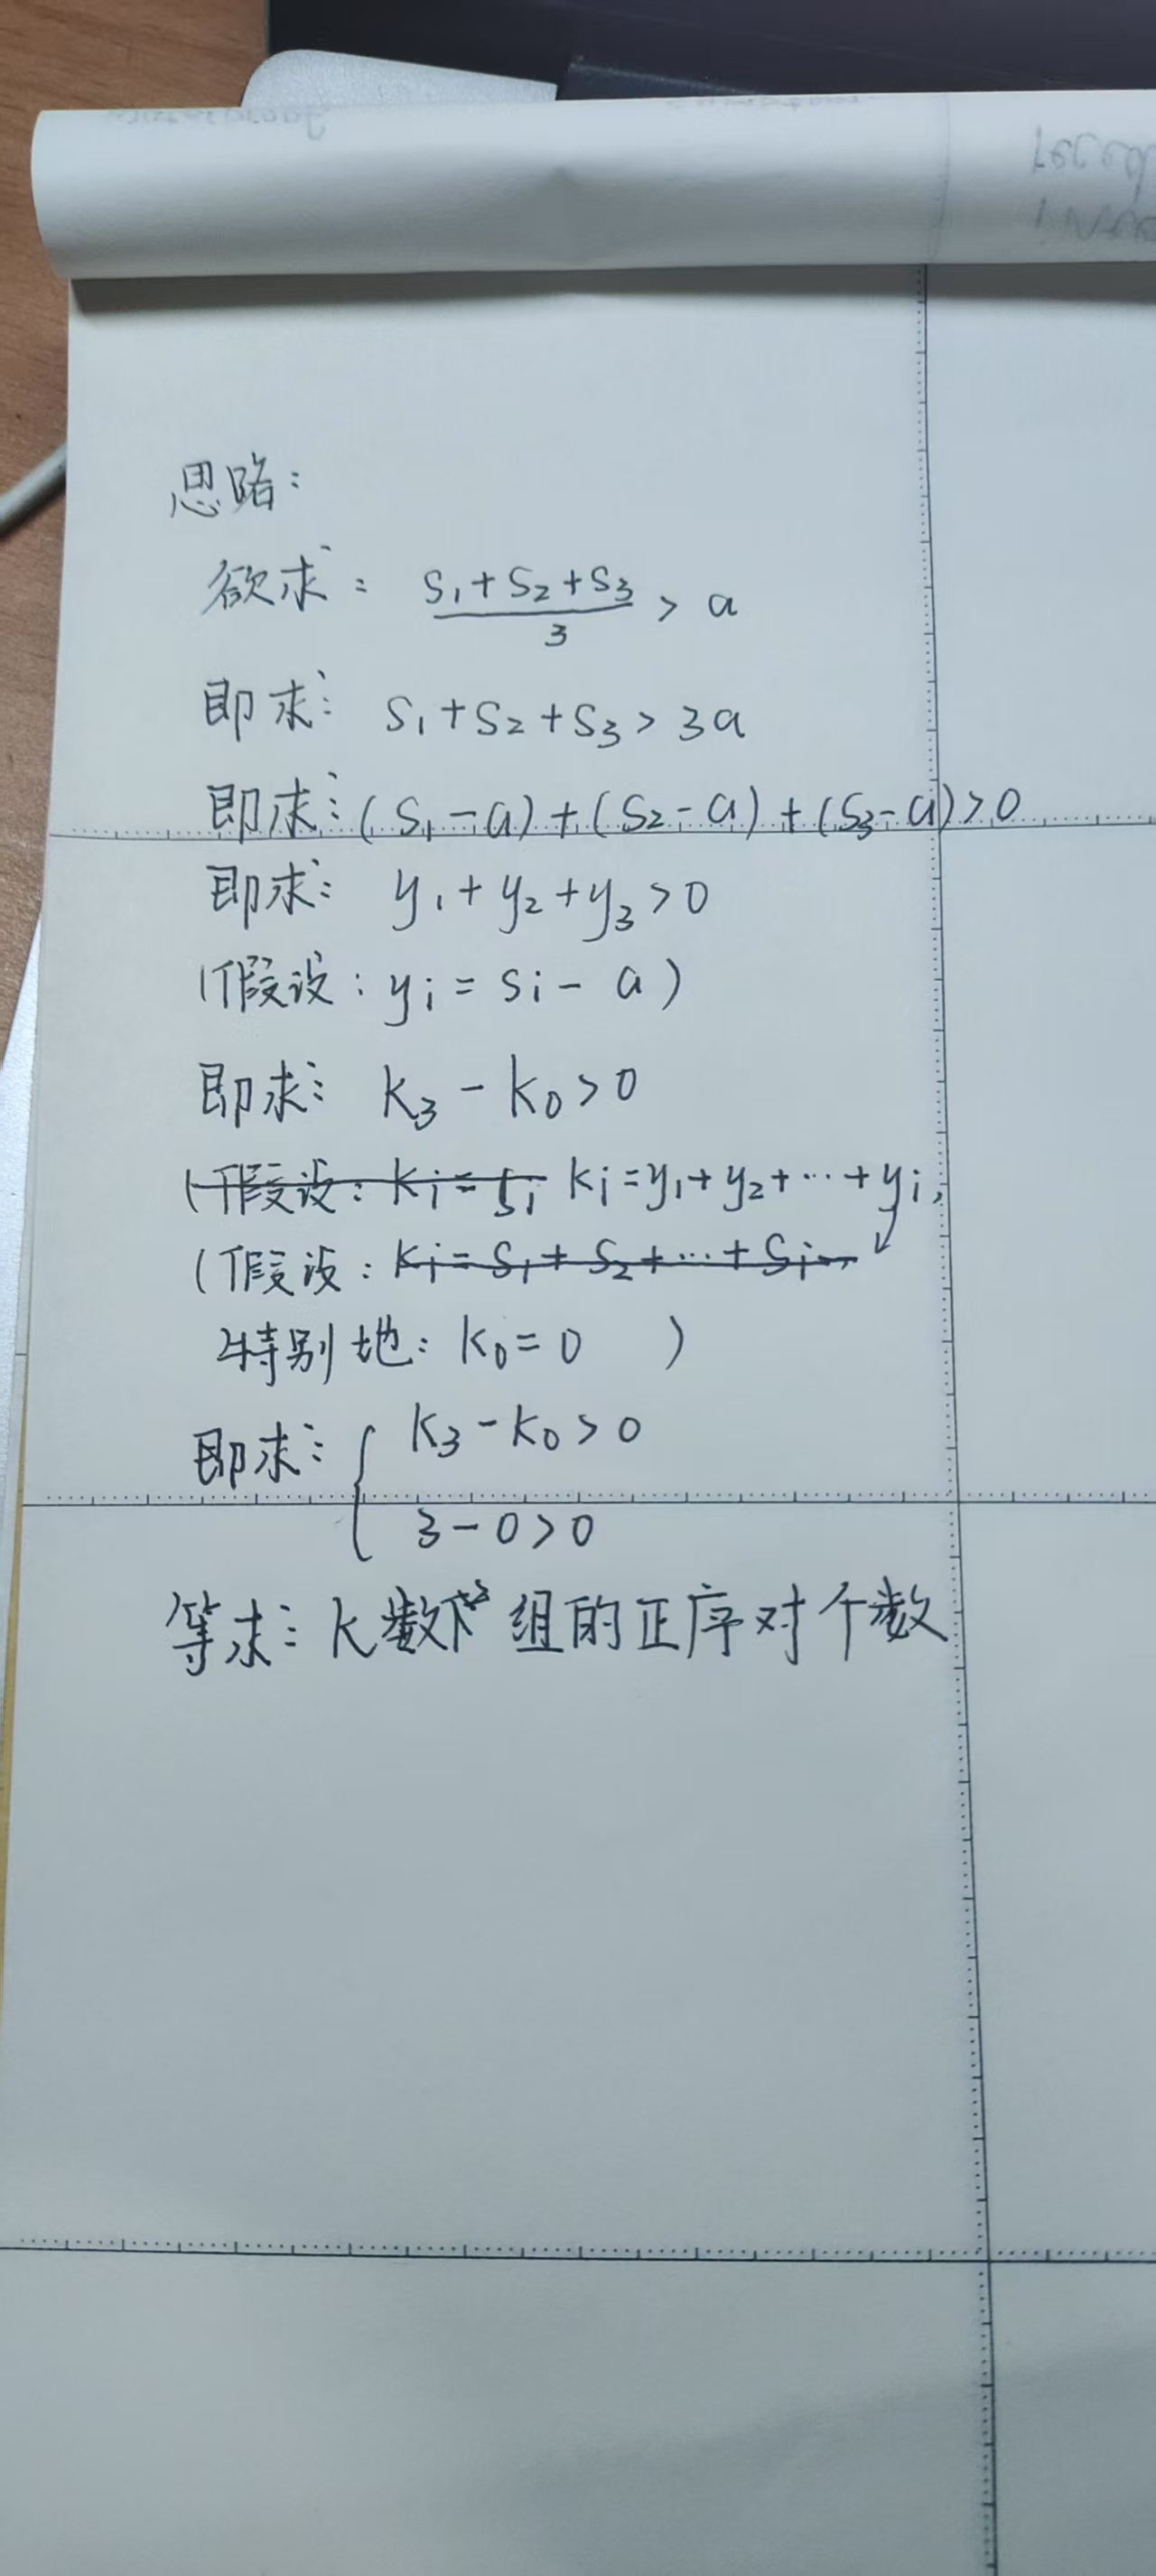 思路:
欲求: (s₁+s₂+s₃)/3 > a
即求: s₁+s₂+s₃>3a
即求: (s₁-a)+(s₂-a)+(s₃-a)>0
即求: y₁+y₂+y₃>0
(假设: yᵢ=sᵢ-a)
即求: k₃-k₀>0
(假设: kᵢ= kᵢ=y₁+y₂+…+yᵢ,
(假设: kᵢ=s₁+s₂+…+sᵢ,
特别地: k₀=0 )
即求: { k₃-k₀>0
3-0>0
等求: k数组的正序对个数